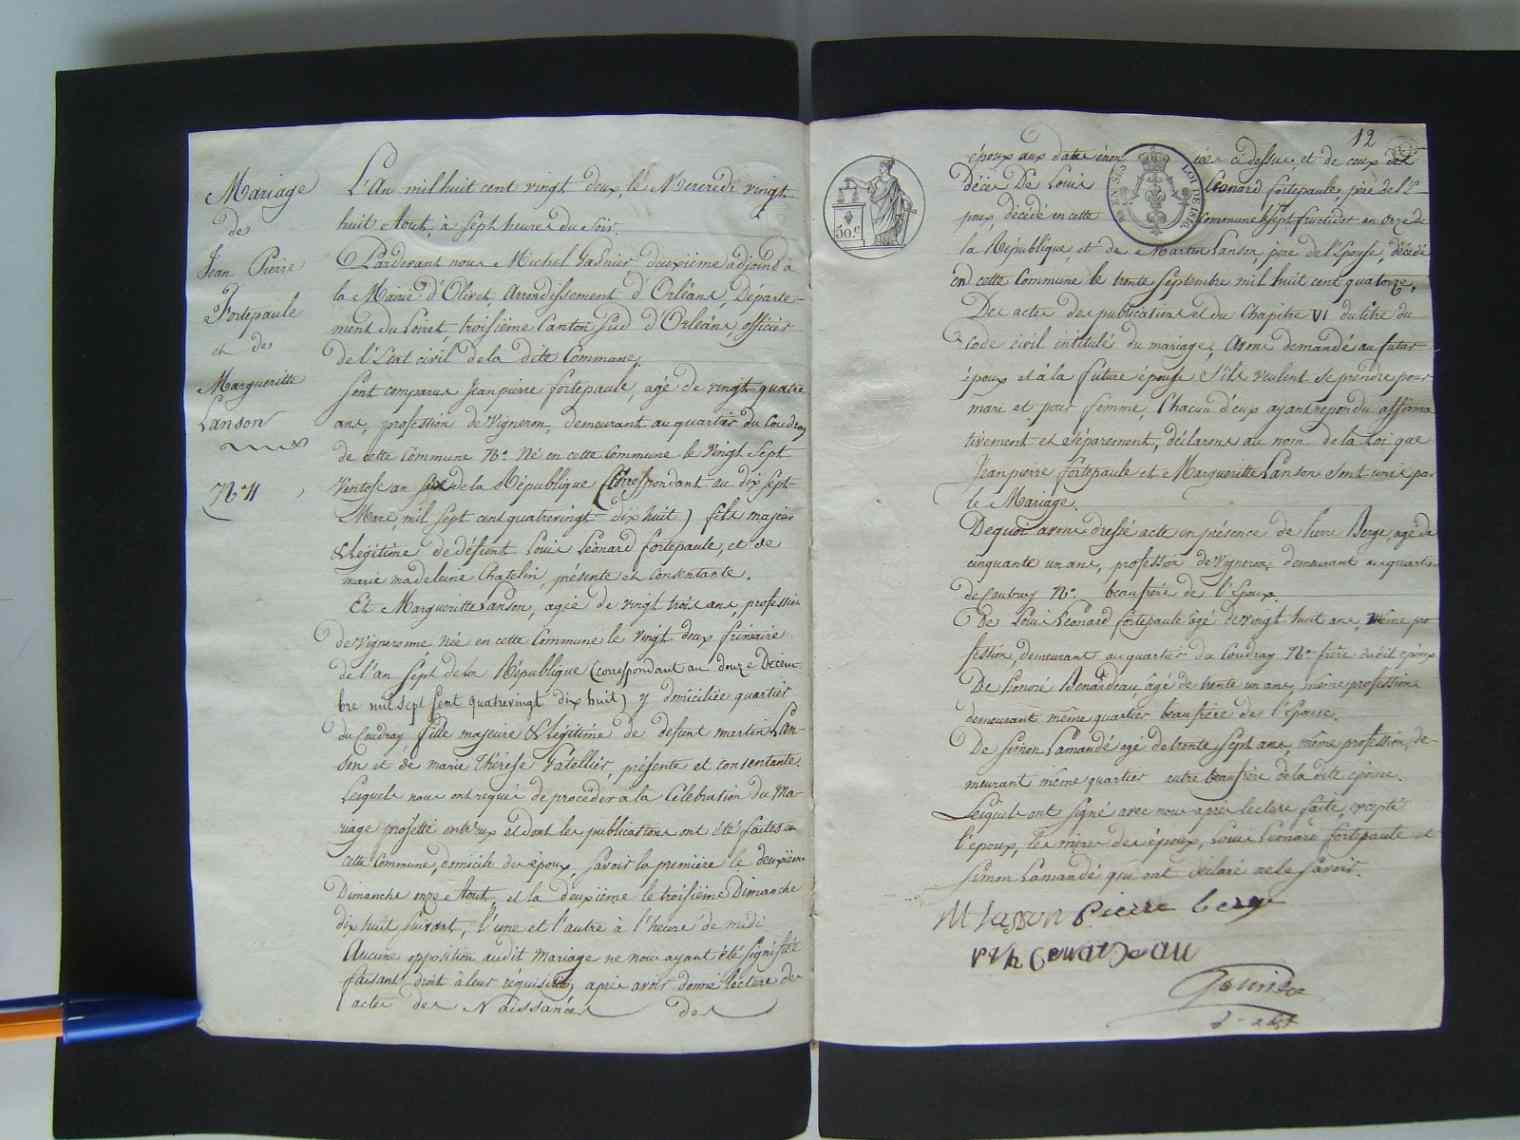 Mariage
de
Jean Pierre
Fortepaule
et de
Margueritte
Lanson
N.º 11
L'An mil huit cent vingt deux, le Mercredi vingt
huit Aout, à sept heures du soir.
Pardevant nous Michel Gasnier deuxième adjoint à
la Mairie d'Olivet, Arrondissement d'Orléans, Départe-
ment du Loiret troisième Canton Sud d'Orléans, officier
de l'Etat civil de la dite Commune,
sont comparus Jean pierre fortepaule, agé de vingt quatre
ans, profession de Vigneron, demeurant au quartier du Coudray
de cette Commune N.º Né en cette Commune le vingt sept
Ventose an six de la République (Correspondant au dix sept
Mars, mil sept cent quatrevingt dix huit) fils majeur
& legitime de défunt Louis Léonard fortepaule, et de
marie madeleine Chatelin, présente et consentante.
Et Margueritte Lanson, agée de vingt trois ans, profession
de Vigneronne Née en cette Commune le vingt deux frimaire
de l'an sept de la République (correspondant au douze Décem-
bre mil sept cent quatrevingt dix huit) y domiciliée quartier
du Coudray fille majeure & légitime de defunt martin Lan-
son et de marie Thérèse Gatellier, présente et consentante.
Lesquels nous ont requis de procéder à la Célébration du Ma-
riage projetté entr'eux et dont les publications ont été faites en
cette Commune, domicile des époux, savoir la première le deuxième
Dimanche onze Aout, et la deuxième le troisième Dimanche
dix huit suivant, l'une et l'autre à l'heure de midi
Aucune opposition audit Mariage ne nous ayant été signifiée
faisant droit à leur réquisition, après avoir donné lecture des
actes de Naissances des
12
30.c
LOI DE 1816
époux aux dates énoncées ci dessus, et de ceux de
décès De Louis Léonard fortepaule, père de l'é-
poux, décédé en cette Commune le sept fructidor an onze de
la République, et de Martin Lanson, père de l'Epouse, décédé
en cette Commune le trente septembre mil huit cent quatorze,
Des actes de publications et du Chapitre VI du titre du
Code civil intitulé du mariage, Avons demandé au futur
époux et à la future épouse s'ils veulent se prendre pour
mari et pour femme, Chacun d'eux ayant repondu affirma
tivement et séparement, déclarons au nom de la Loi que
Jean pierre fortepaule et Margueritte Lanson sont unis par
le Mariage.
De quoi avons dressé acte en présence de Pierre Berge, agé de
cinquante un ans, profession de Vigneron, demeurant au quartier
de Coudray N.º beaufrère de l'Epoux.
De Louis Léonard fortepaule agé de vingt huit ans, même pro
fession, demeurant au quartier du Coudray N.º frère dudit époux
De Honoré Benardeau agé de trente un ans, même profession
demeurant même quartier beaufrère de l'épouse.
De Simon Lamandé agé de trente sept ans, même profession, de-
meurant même quartier autre beaufrère de la dite épouse.
Lesquels ont signé avec nous après lecture faite, excepté
l'époux, les mères des époux, Louis Léonard fortepaule et
Simon Lamandé qui ont déclaré ne le savoir.
M Lanson Pierre berge
Gasnier